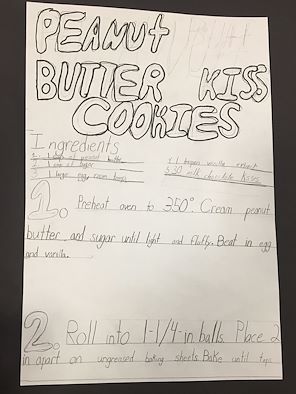 PEANUT
BUTTER KISS
COOKIES
Ingredients
1. 1 cup of peanut butter
2. 1 cup of sugar
3. 1 large egg, room temp.
4. 1 teaspoon vanilla extract
5. 30 milk chocolate kisses
1. Preheat oven to 350°. Cream peanut
butter and sugar until light and fluffy. Beat in egg
and vanilla.
2. Roll into 1-1/4-in balls. Place 2
in apart on ungreased baking sheets. Bake until tops